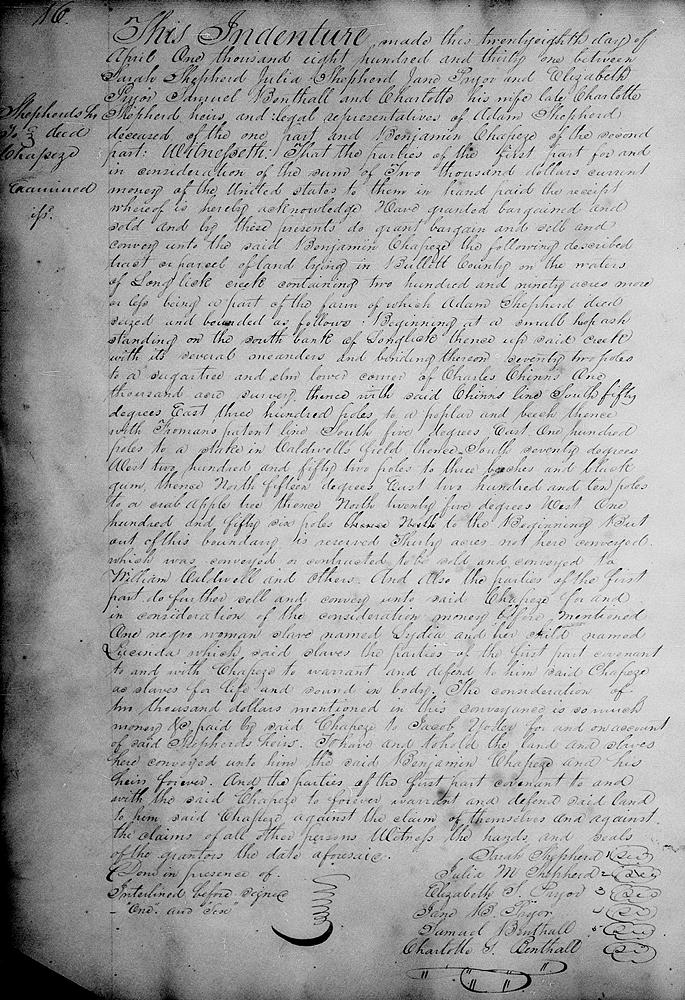 16.
This Indenture made this twentyeighth day of
April One thousand eight hundred and thirty one between
Sarah Shepherd Julia Shepherd Jane Pryor and Elizabeth
Pryor Samuel Benthall and Charlotte his wife late Charlotte
Shepherd heirs, and legal representatives of Adam Shepherd
deceased of the one part and Benjamin Chapeze of the second
part: Witnesseth: That the parties of the first part for and
in consideration of the sum of Two thousand dollars current
money of the United States to them in hand paid the receipt
whereof is hereby acknowledge Have granted bargained and
sold and by these presents do grant bargain and sell and
convey unto the said Benjamin Chapeze the following described
tract or parcel of land lying in Bullitt County on the waters
of Long lick creek containing two hundred and ninety acres more
or less being a part of the farm of which Adam Shepherd died
seized and bounded as follows: Beginning at a small hop ash
standing on the south bank of Longlick thence up said creek
with its several meanders and binding thereon seventy two poles
to a sugartree and elm lower corner of Charles Chinns One
thousand acre survey, thence with said Chinns line South fifty
degrees East three hundred poles to a poplar and beech thence
with Thomas patent line South five degrees East One hundred
poles to a stake in Caldwells field thence South seventy degrees
West two hundred and fifty two poles to three beeches and black
gum, thence North fifteen degrees East two hundred and ten poles
to a crab apple tree thence North twenty five degrees West One
hundred and fifty six poles thence North to the Beginning But
out of this boundary is reserved Thirty acres not here conveyed
which was conveyed or contracted to be sold and conveyed to
William Caldwell and others. And also the parties of the first
part do further sell and convey unto said Chapeze for and
in consideration of the consideration money before mentioned
One negro woman slave named Lydia and her child named
Lucenda which said slaves the parties of the first part covenant
to and with Chapeze to warrant and defend to him said Chapeze
as slaves for life and sound in body. The consideration of
two thousand dollars mentioned in this conveyance is so much
money &c paid by said Chapeze to Jacob Yoder for and on account
of said Shepherds heirs. To have and to hold the land and slaves
here conveyed unto him the said Benjamin Chapeze and his
heirs forever. And the parties of the first part covenant to and
with the said Chapeze to forever warrant and defend said land
to him said Chapeze against the claim of themselves and against
the claims of all other persons Witness the hands and seals
of the grantors the date aforesaid.
Done in presence of
Interlined before signed
"One. and Two"
Sarah Shepherd 1 Seal
Julia M Shepherd 2 Seal
Elizabeth S. Pryor 3 Seal
Jane B. Pryor 4 Seal
Samuel Benthall 5 Seal
Charlotte S. Benthall Seal
Shepherds hrs
To deed
Chapeze
Examined